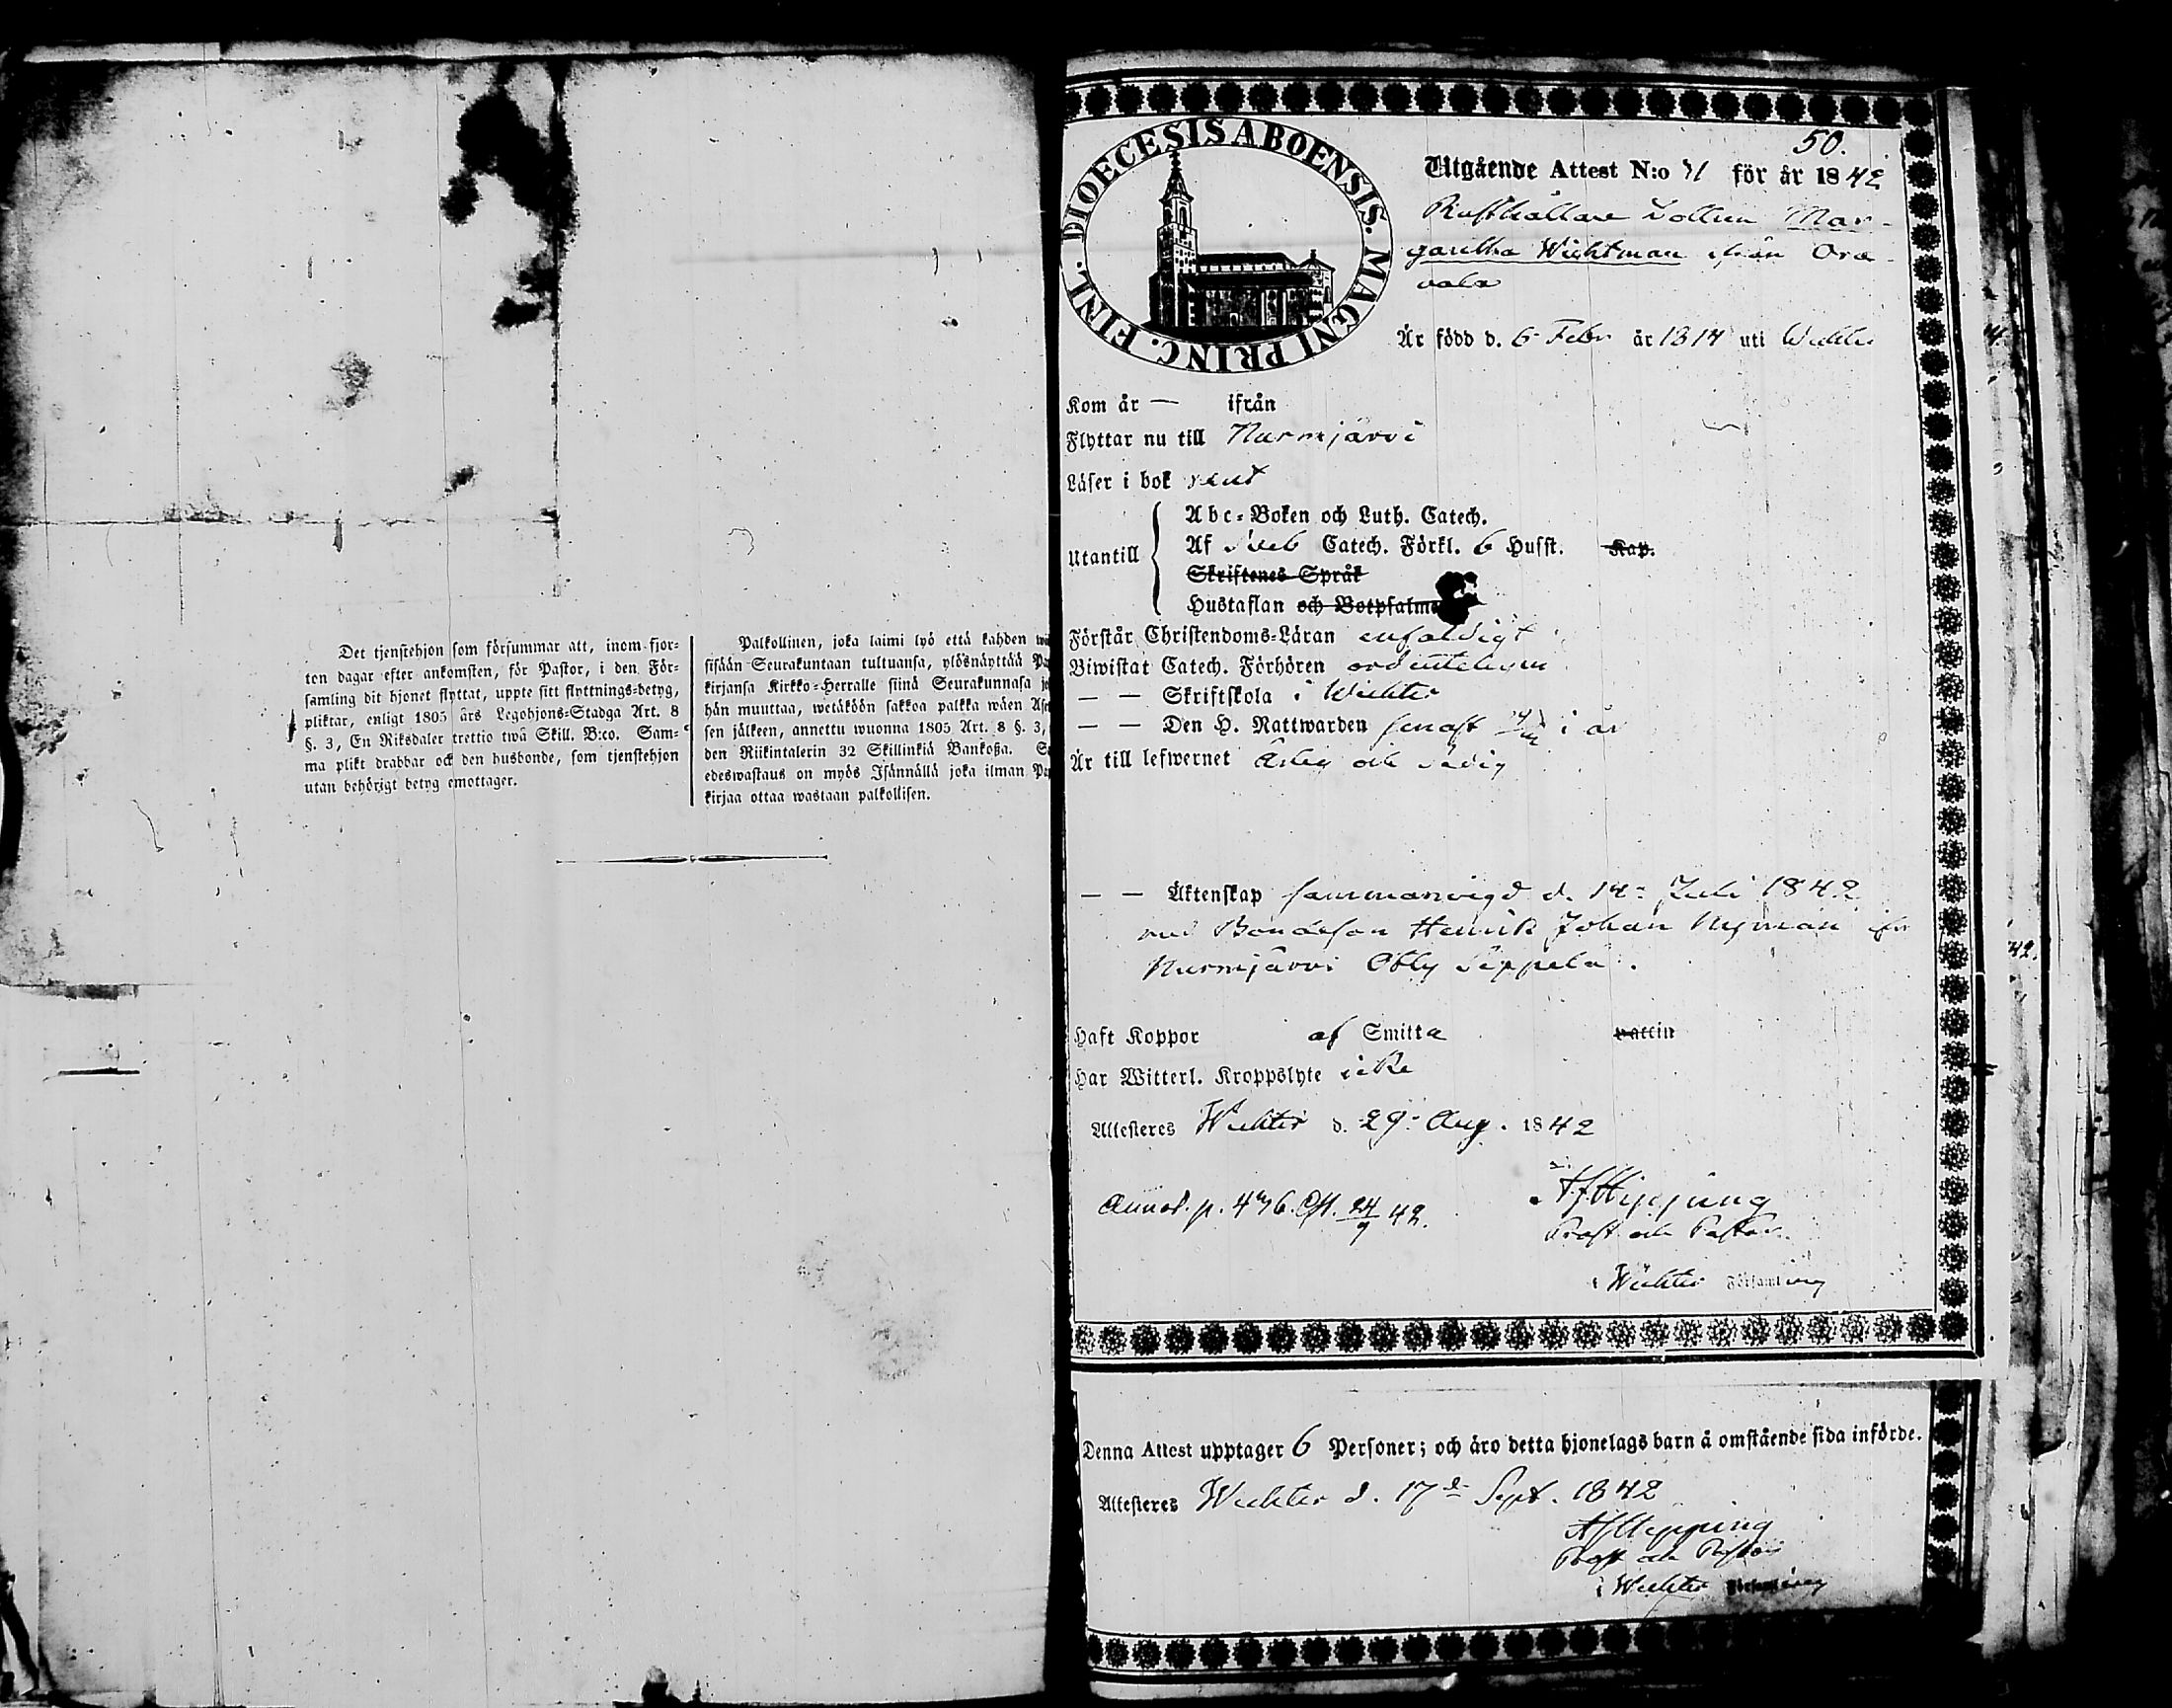 Det tjenstehjon som försummar att, inom fjor-
ton dagar efter ankomsten, för Pastor, i den För-
samling dit hjonet flyttat, uppte sitt flyttnings-betyg,
pliktar, enligt 1805 års Legohjons-Stadga Art. 8
§. 3, En Riksdaler trettio twå Skill. B:co. Sam-
ma plikt drabbar ock den husbonde, som tjenstehjon
utan behörigt betyg emottager.
Palkollinen, joka laimi lyö että kahden
sisään Seurakuntaan tultuansa, ylösnäyttää
kirjansa Kirkko-Herralle siinä Seurakunnasa
hän muuttaa, wetäköön sakkoa palkka wäen
sen jälkeen, annettu wuonna 1805 Art. 8 §. 3,
den Riikintalerin 32 Skillinkiä Bankoßa.
edeswastaus on myös Isännällä joka ilman
kirjaa ottaa wastaan palkollisen.
DIOECESIS ABOENSIS. MAGNI PRINC. FINL.
50.
Utgående Attest N:o 71 för år 1842
Rusthållare Dottren Mar-
garetha Wichtman ifrån Ora-
vala
Är född d. 6 Febr år 1814 uti Wichtis
Kom år — ifrån
Flyttar nu till Nurmijärvi
Läser i bok rent
Utantill
Abc-Boken och Luth. Catech.
Af Sveb Catech. Förkl. 6 Hufst. Kap.
Skriftenes Språk
Hustaflan och Botpsalm
Förstår Christendoms-Läran enfaldigt
Biwistat Catech. Förhören ordenteligen
— — Skriftskola i Wichtis
— — Den H. Nattwarden senast i år
Är till lefwernet Ärlig och sedig
— — Äktenskap sammanvigd d. 14 Juli 1842
med Bondeson Henrik Johan Nyman ifr
Nurmijärvi Obly Seppela.
Haft Koppor af Smitta vaccin
Har Witterl. Kroppslyte icke
Attesteres Wichtis d. 29 Aug. 1842
Annot. p. 476. Oft. 24/9 42.
AJHipping
Prost och Pastor
i Wichtis Församling
Denna Attest upptager 6 Personer; och äro detta hjonelags barn å omstående sida införde.
Attesteres Wichtis d. 17de Sept. 1842
AJHipping
Prost och Pastor
i Wichtis Församling